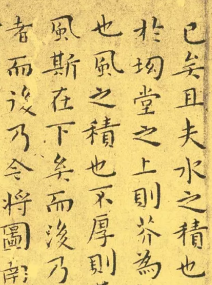 已矣且夫水之積也
於坳堂之上則芥為
也風之積也不厚則
風斯在下矣而後乃
者而後乃今將圖